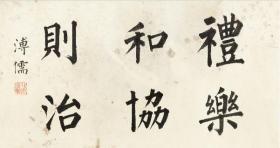 禮樂
和協
則治
溥儒